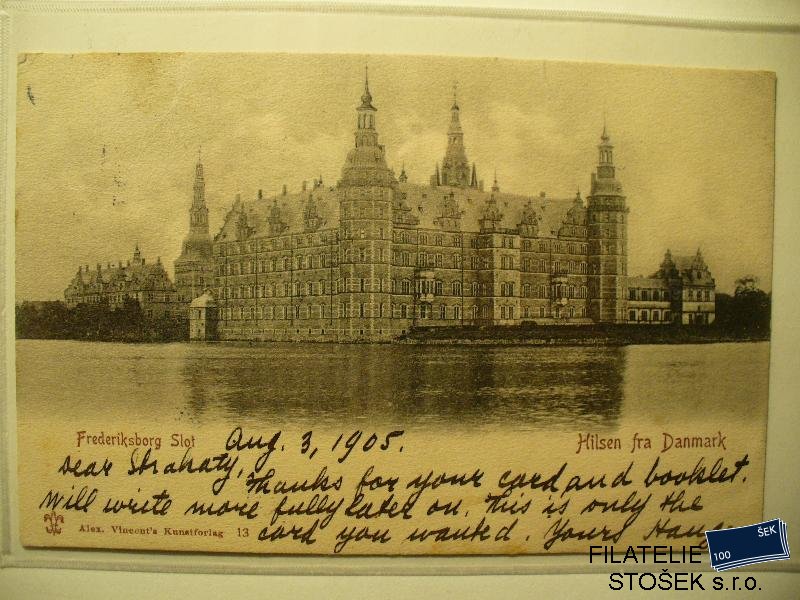 Frederiksborg Slot
Hilsen fra Danmark
Aug. 3, 1905.
Dear
Thanks for your card and booklet.
Will write more fully later on. This is only the
card you wanted. Yours
Alex. Vincent's Kunstforlag 13
100 ŠEK
FILATELIE
STOŠEK s.r.o.